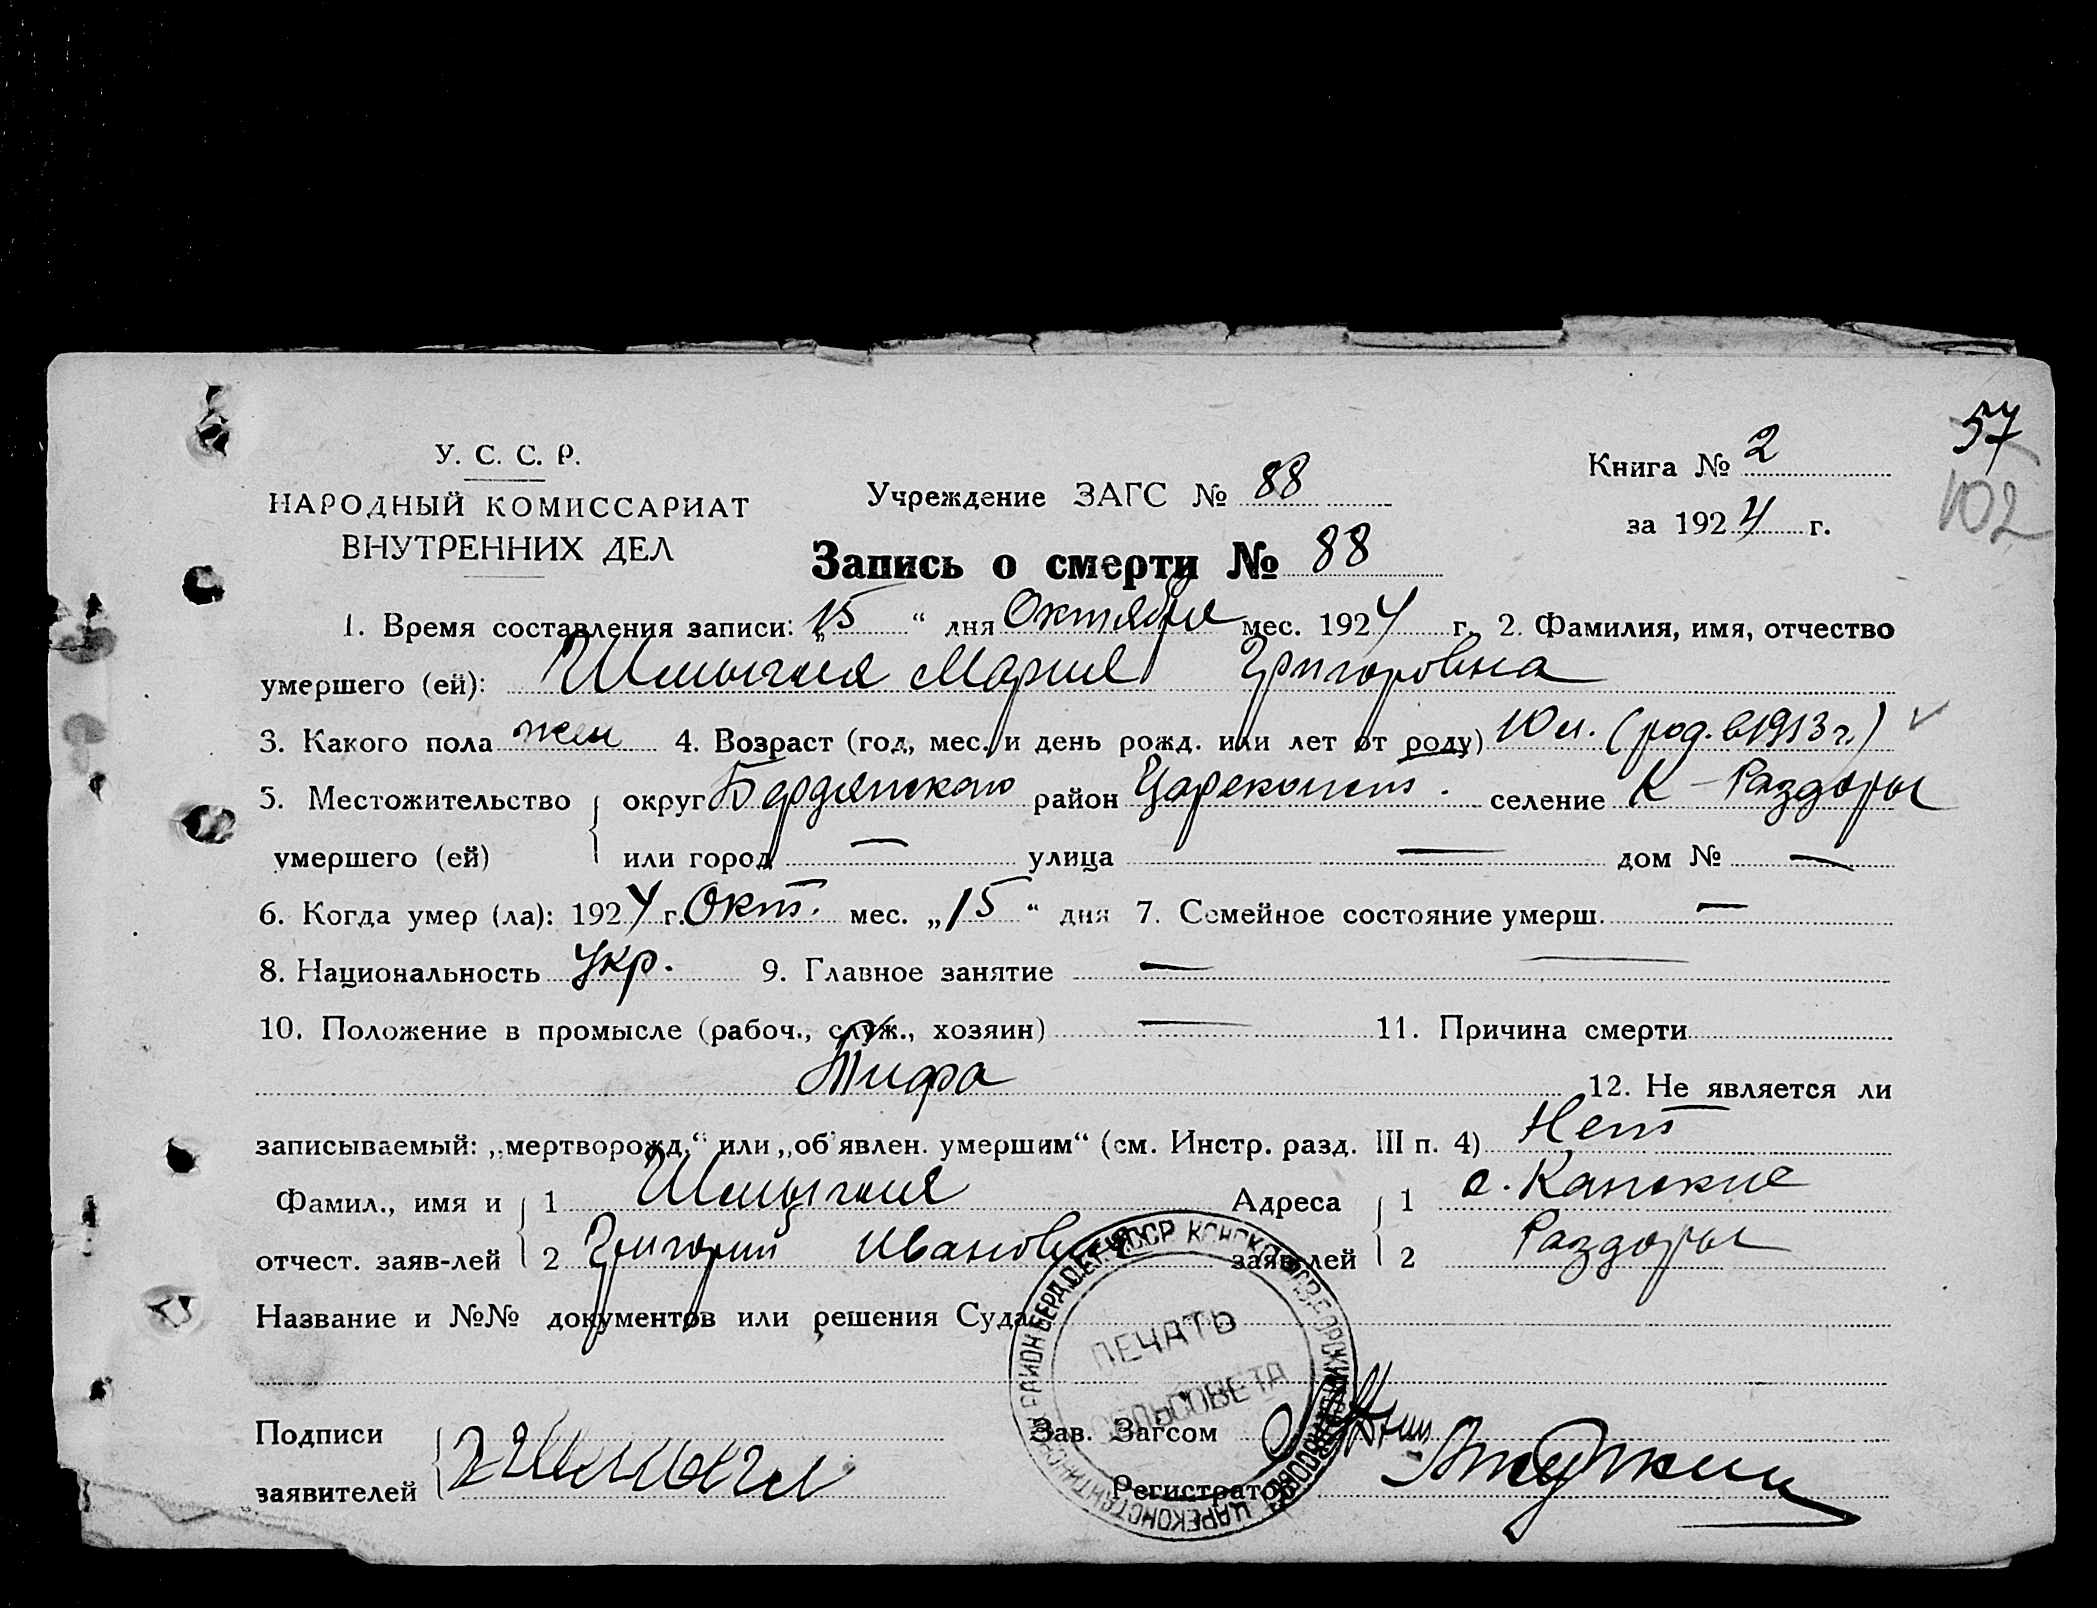 57
102
У. С. С. Р.
НАРОДНЫЙ КОМИССАРИАТ
ВНУТРЕННИХ ДЕЛ
Учреждение ЗАГС № 88
Книга № 2
за 1924 г.
Запись о смерти № 88
1. Время составления записи: „15“ дня Октября мес. 1924 г. 2. Фамилия, имя, отчество
умершего (ей): Мария Григоровна
3. Какого пола жен 4. Возраст (год, мес. и день рожд. или лет от роду) 10 л. (род. в 1913 г.)
5. Местожительство округ Бердянского район Цареконст. селение К-Раздоры
умершего (ей) или город — улица — дом № —
6. Когда умер (ла): 1924 г. Окт. мес. „15“ дня 7. Семейное состояние умерш. —
8. Национальность Укр. 9. Главное занятие —
10. Положение в промысле (рабоч., служ., хозяин) — 11. Причина смерти
Тифа 12. Не является ли
записываемый: „мертворожд.“ или „об'явлен. умершим“ (см. Инстр. разд. III п. 4) Нет
Фамил., имя и 1 Адреса 1 с. Канские
отчест. заяв-лей 2 Григорий Иванович заяв-лей 2 Раздоры
Название и №№ документов или решения Суда
ПЕЧАТЬ
СЕЛЬСОВЕТА
Подписи Зав. Загсом
заявителей Регистратор